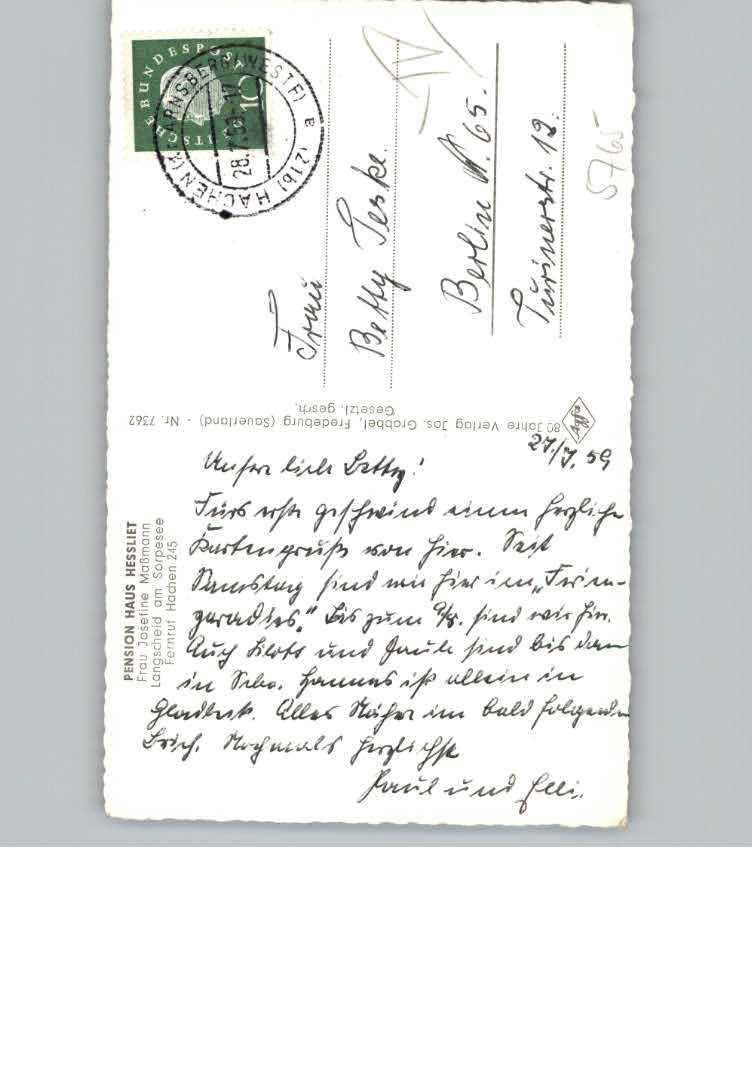 DEUTSCHE BUNDESPOST
10
(21b) HACHEN (Kr ARNSBERG/WESTF) a
28.7.59-17
5765
Frau
Betty Teske.
Berlin N. 65.
Turinerstr. 12.
Agfa
80 Jahre Verlag Jos. Grobbel, Fredeburg (Sauerland) - Nr. 7362
Gesetzl. gesch.
PENSION HAUS HESSLIET
Frau Josefine Maßmann
Langscheid am Sorpesee
Fernruf Hachen 245
27./7. 59
Unsere liebe Betty!
Fürs erste geschwind einen herzliche
Kartengruß von hier. Seit
Samstag sind wir hier im „Ferien-
paradies." Bis zum 9/8. sind wir hier.
Auch und Paule sind bis dann
in Hannes ist allein in
Gladbeck. Alles Nähere im bald folgenden
Brief. Nochmals herzlichst
Paul und Elli.